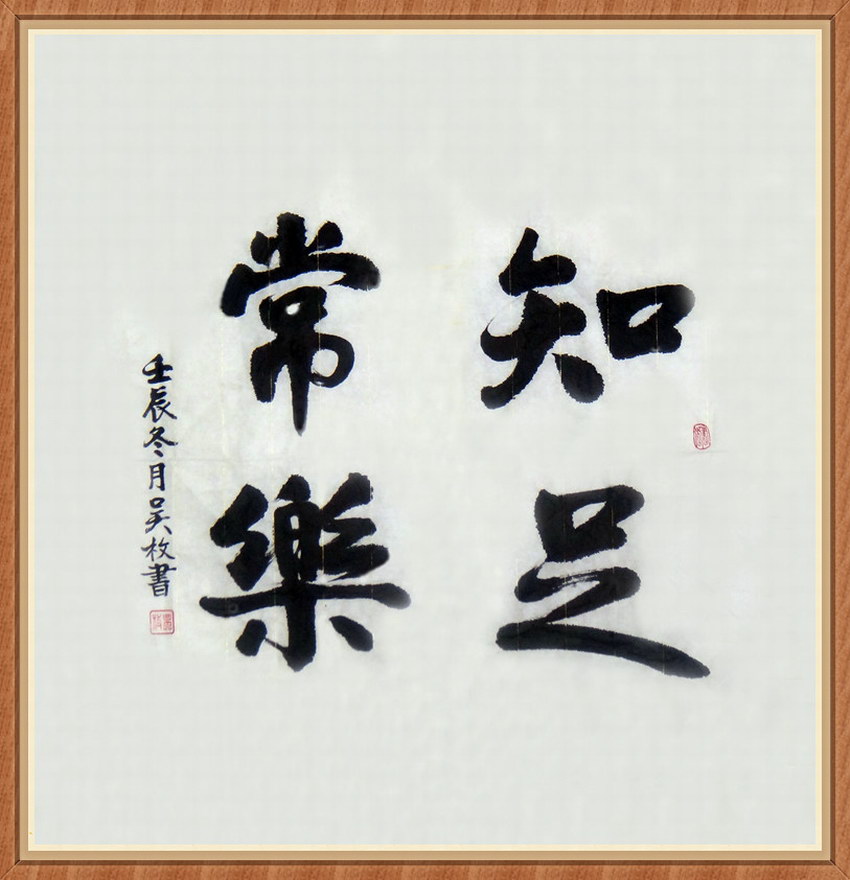 知足
常樂
壬辰冬月吳枚書